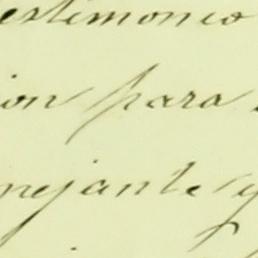 estimonio
ion para
nejante y